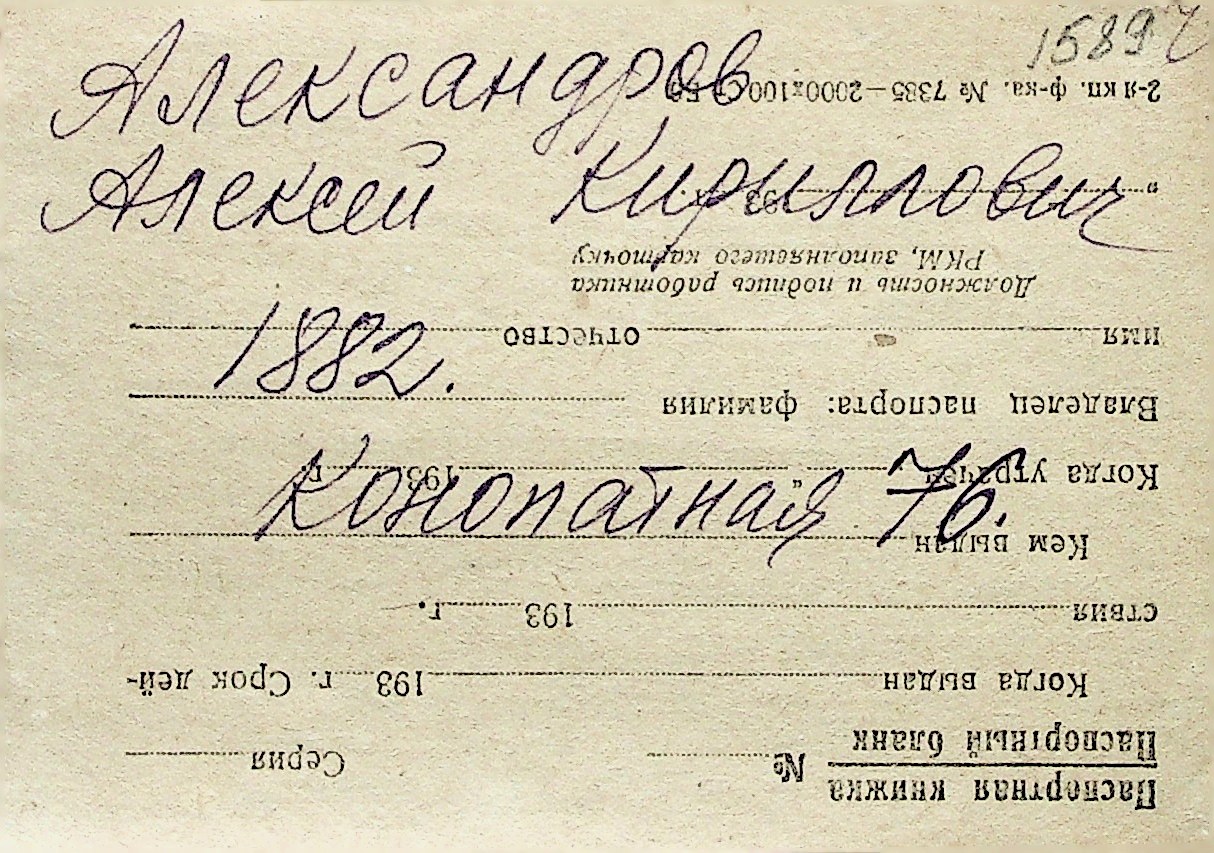 15897
Александров
Алексей Кириллович
1882.
Конопатная 76.
Паспортная книжка
Паспортный бланк
№ Серия
Когда выдан 193 г. Срок дей-
ствия 193 г.
Кем выдан
Когда утрачен „ 193 г.
Владелец паспорта: фамилия
имя отчество
Должность и подпись работника
РКМ, заполняешего карточку
„ 193
2-я кп. ф-ка. № 7385—2000х100